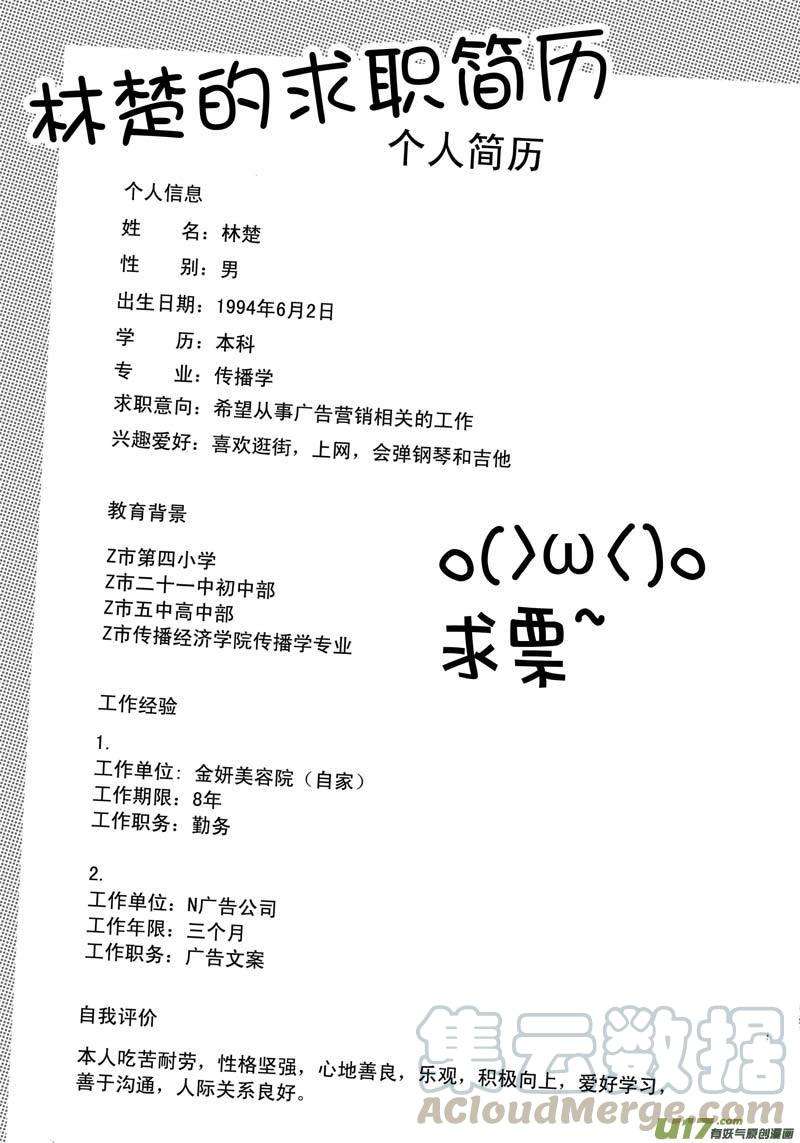 林楚的求职简历
个人简历
个人信息
姓 名：林楚
性 别：男
出生日期：1994年6月2日
学 历：本科
专 业：传播学
求职意向：希望从事广告营销相关的工作
兴趣爱好：喜欢逛街，上网，会弹钢琴和吉他
教育背景
Z市第四小学
Z市二十一中初中部
Z市五中高中部
Z市传播经济学院传播学专业
o(>ω<)o
求票~
工作经验
1.
工作单位: 金妍美容院（自家）
工作期限：8年
工作职务：勤务
2.
工作单位：N广告公司
工作年限：三个月
工作职务：广告文案
自我评价
本人吃苦耐劳，性格坚强，心地善良，乐观，积极向上，爱好学习，
善于沟通，人际关系良好。
集云数据
AcloudMerge.com
U17.com
有妖气原创漫画